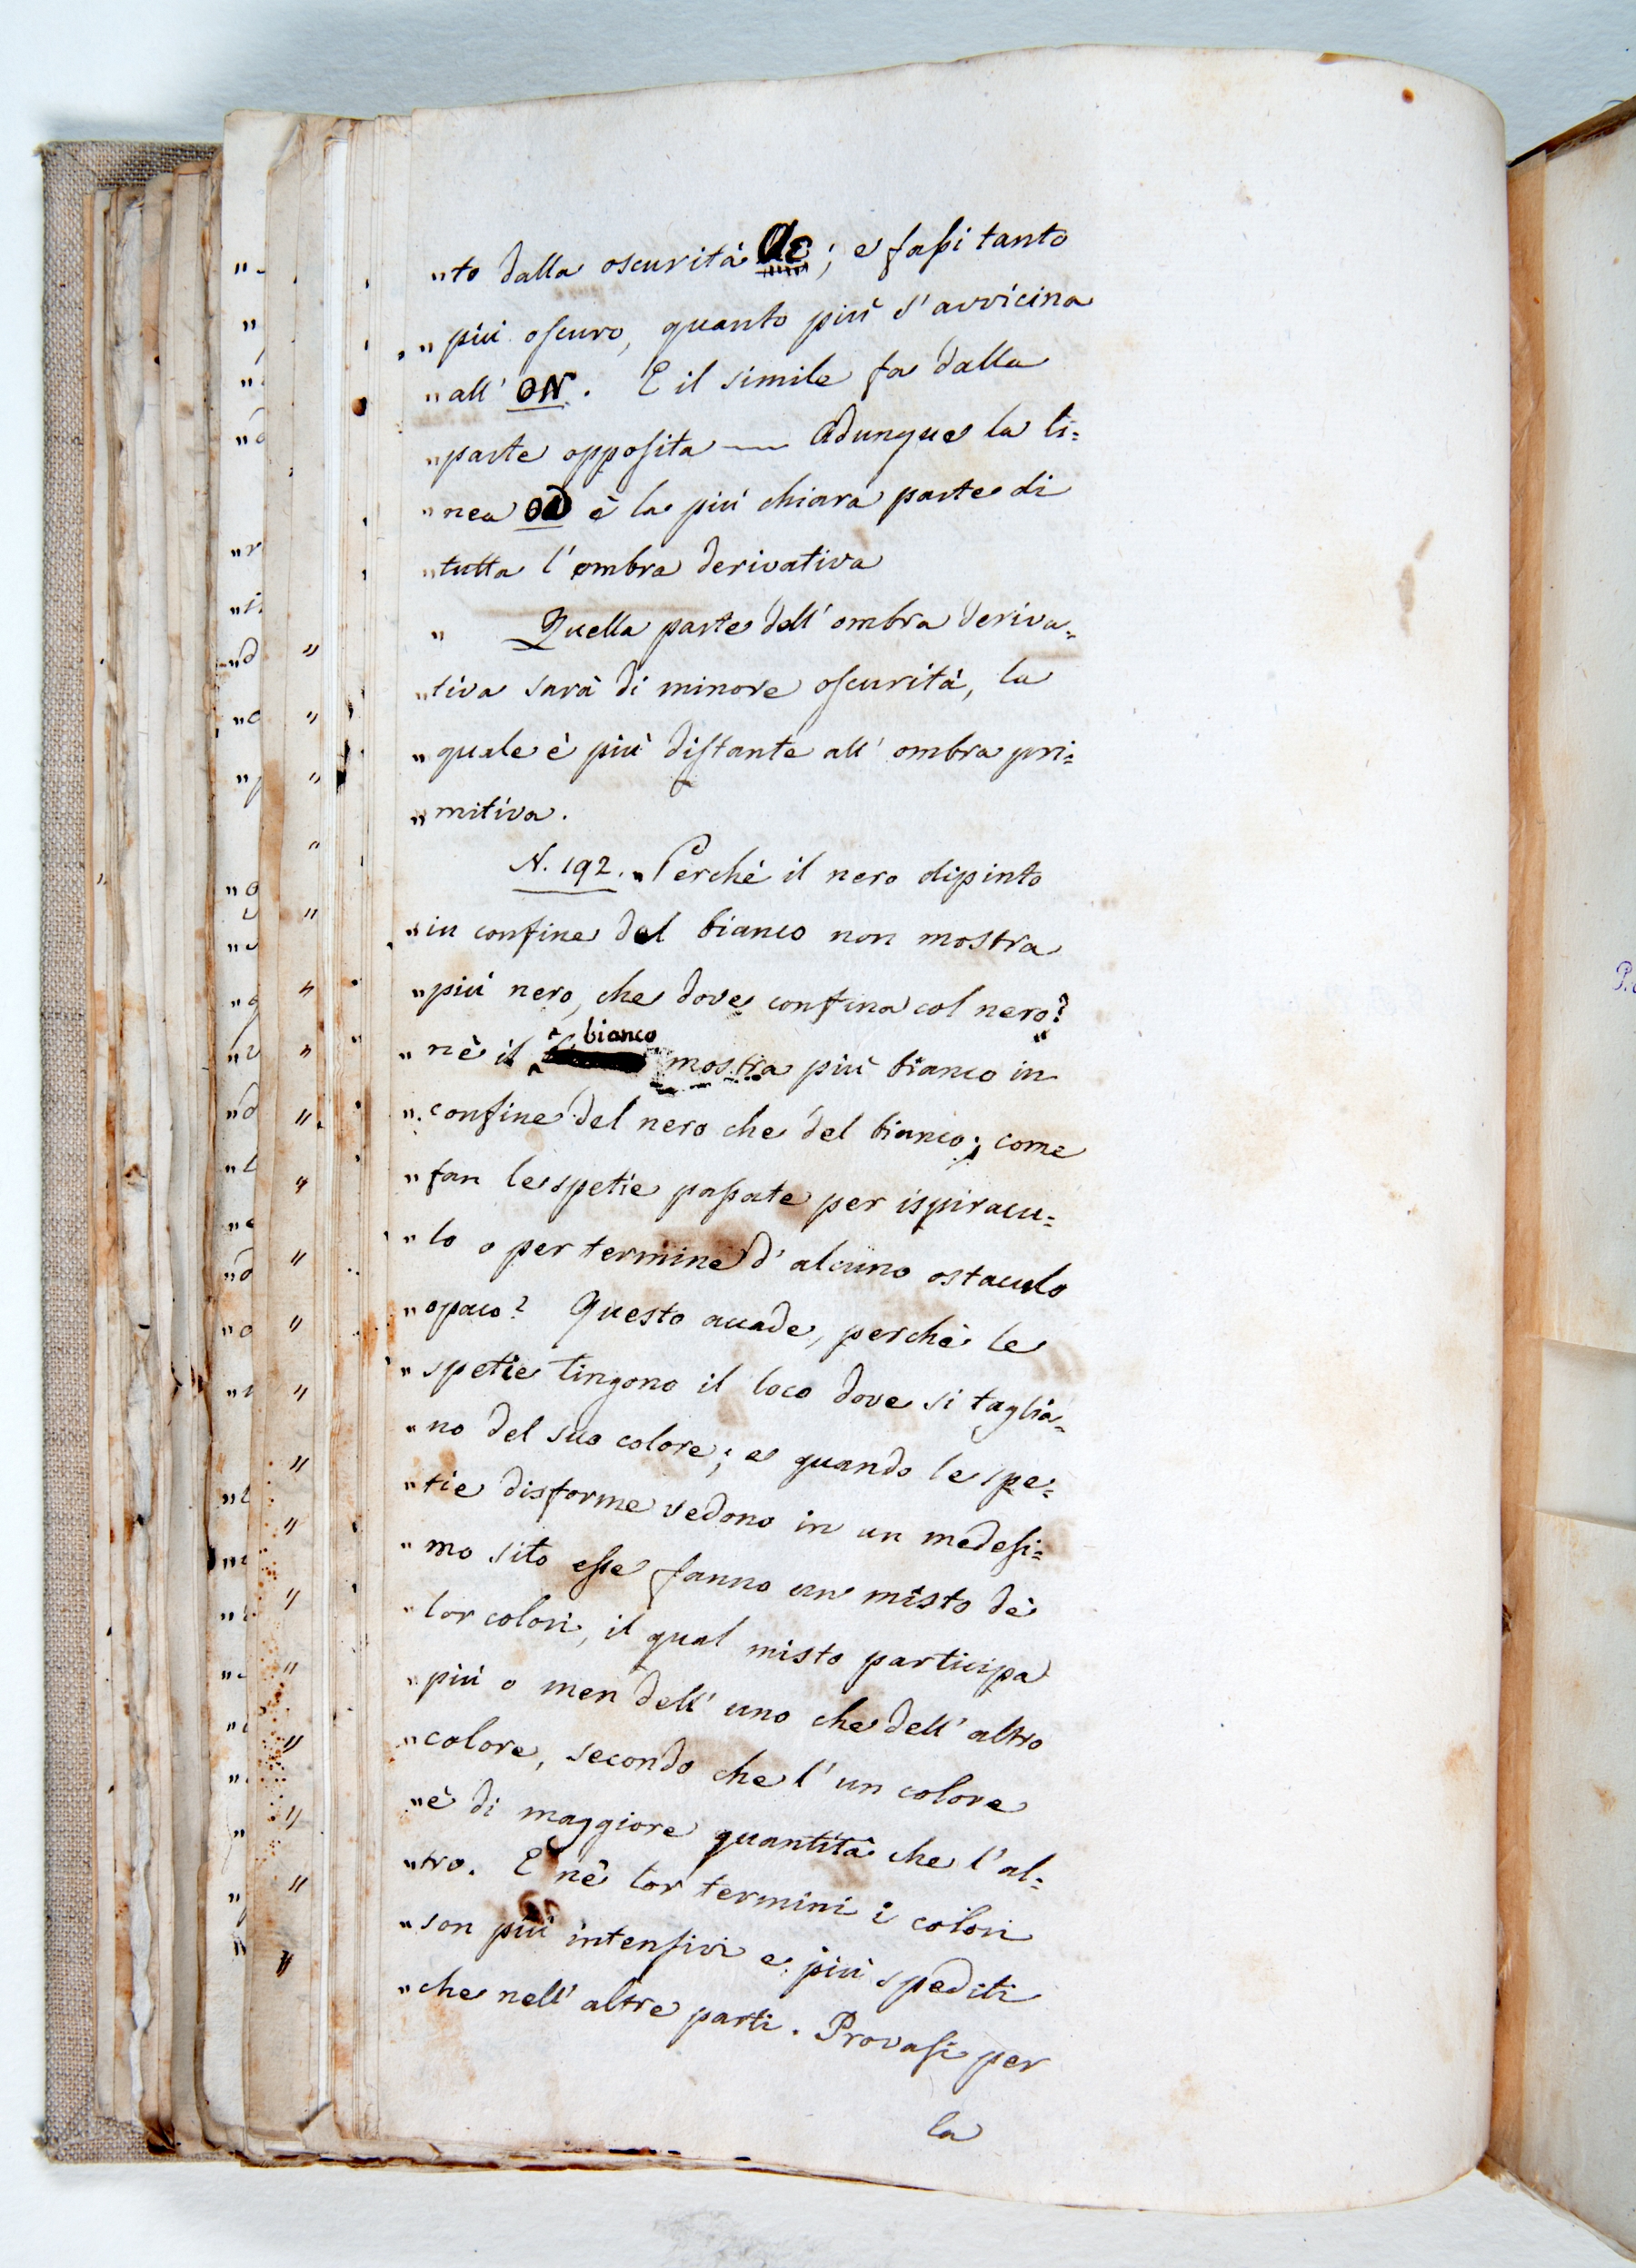 "to dalla oscurità ae; e fassi tanto
"più oscuro, quanto più s'avvicina
"all' on. E il simile fa dalla
"parte opposita — Adunque la li=
"nea oa è la più chiara parte di
"tutta l'ombra derivativa
" Quella parte dell'ombra deriva=
"tiva sarà di minore oscurità, la
"quale è più distante all'ombra pri=
"mitiva.
N. 192. "Perchè il nero dipinto
"in confine del bianco non mostra
"più nero, che dove confina col nero?
"nè il bianco mostra più bianco in
"confine del nero che del bianco; come
"fan le spetie passate per ispiracu=
"lo o per termine d'alcuno ostaculo
"opaco? Questo accade, perchè le
"spetie tingono il loco dove si taglia=
"no del suo colore; e quando le spe=
"tie disforme vedono in un medesi=
"mo sito esse fanno un misto de'
"lor colori, il qual misto participa
"più o men dell'uno che dell'altro
"colore, secondo che l'un colore
"è di maggiore quantità che l'al=
"tro. E nè lor termini i colori
"son più intensivi e più spediti
"che nell'altre parti. Provasi per
la